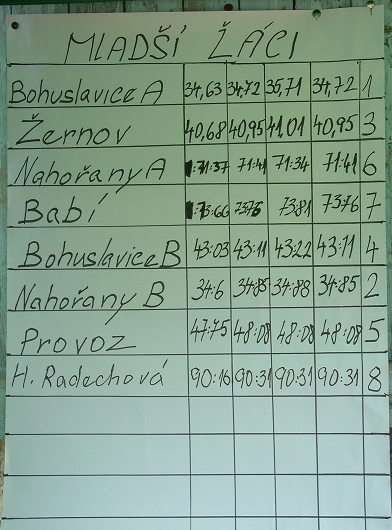 MLADŠÍ ŽÁCI
Bohuslavice A 34,63 34,72 35,71 34,72 1
Žernov 40,68 40,95 41,01 40,95 3
Nahořany A :71:37 71:41 71:34 71:41 6
Babí :73:66 7376 7381 7376 7
Bohuslavice B 43:03 43:11 43:22 43:11 4
Nahořany B 34:6 34:85 34:88 34:85 2
Provoz 47:75 48:08 48:08 48:08 5
H. Radechová 90:16 90:31 90:31 90:31 8